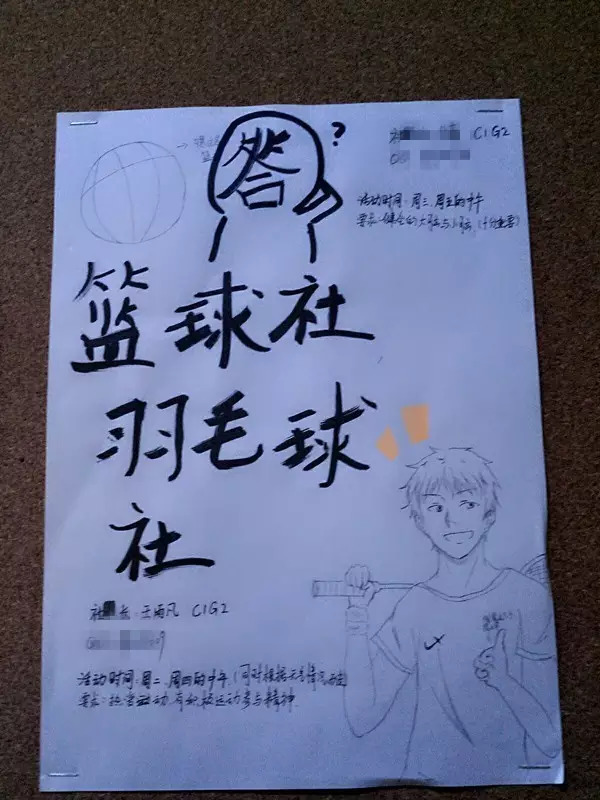 答?
C1G2
活动时间:周三、周五的中午
要求:健全的大脑与小脑(十分重要)
篮球社
羽毛球
社
社 长:王雨凡 C1G2
活动时间:周二、周四的中午(同时根据天气情况而定)
要求:热爱运动,有积极运动参与精神.